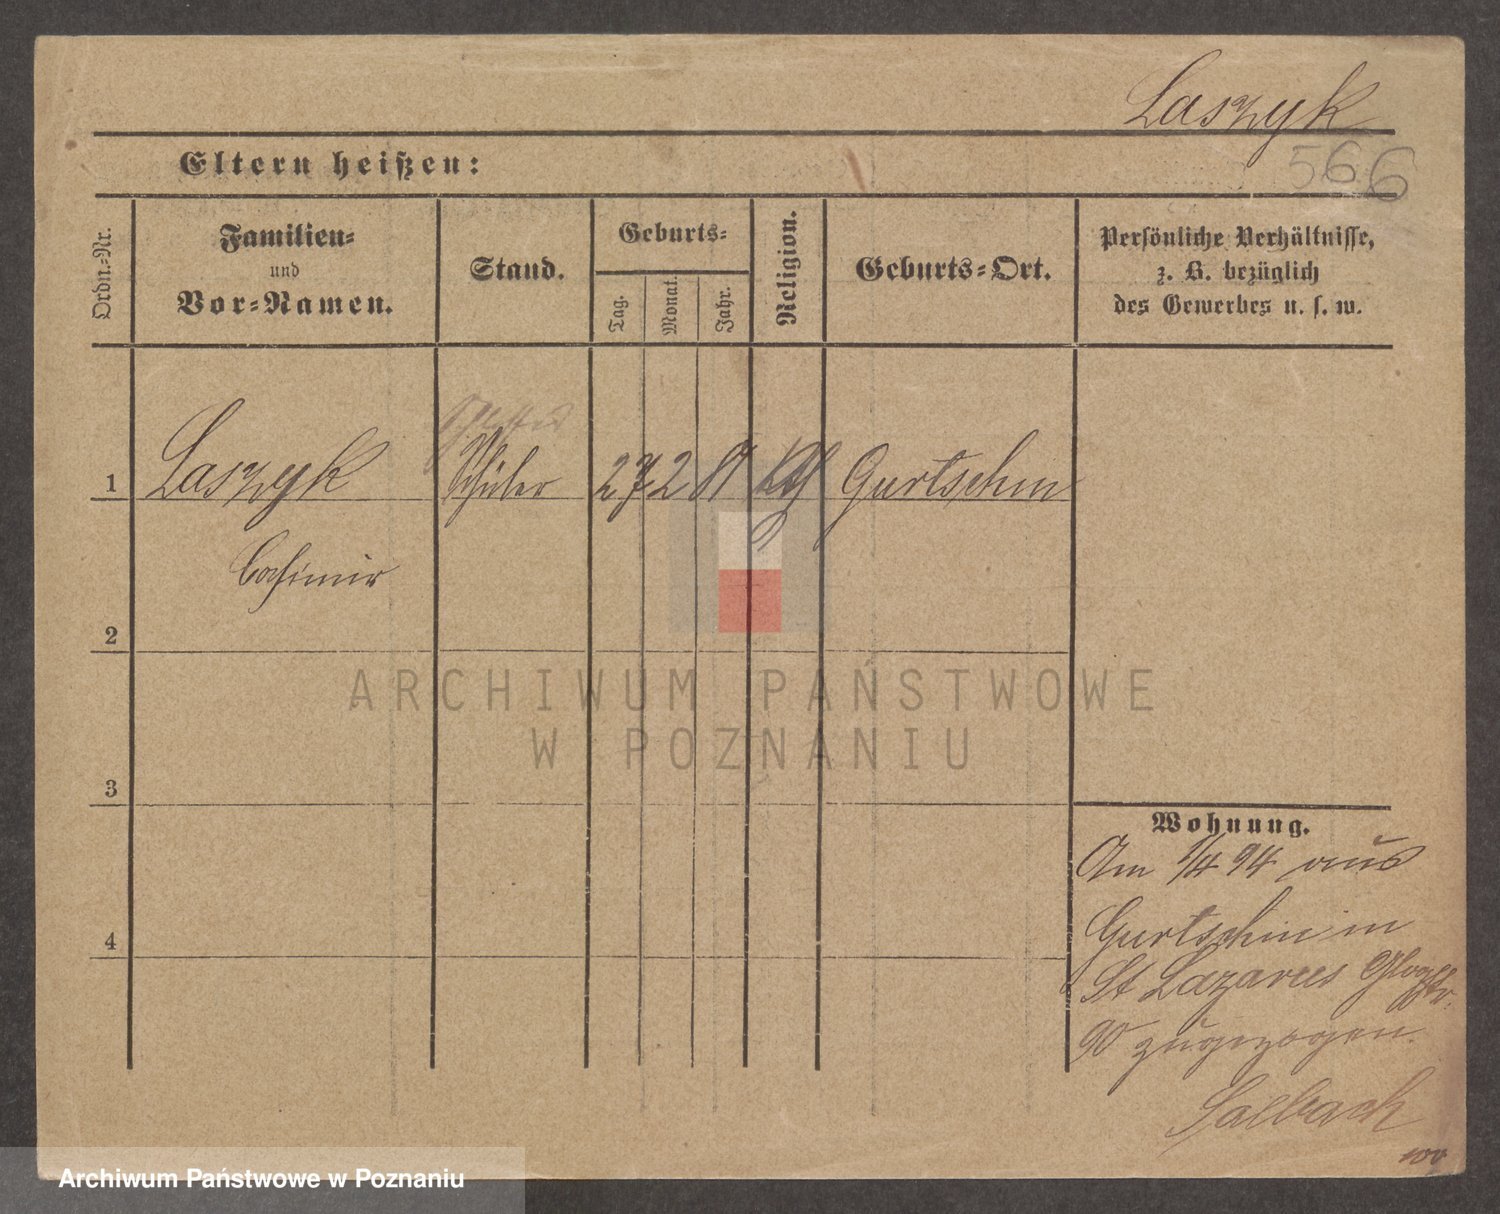 Laszyk
566
Eltern heißen:
Ordn.-Nr.
Familien-
und
Vor-Namen.
Stand.
Geburts-
Tag.
Monat.
Jahr.
Religion.
Geburts-Ort.
Persönliche Verhältnisse,
z. B. bezüglich
des Gewerbes u. s. w.
1 Laszyk Schüler 27 2 Gurtschin
Casimir
2
3
4
Wohnung.
Am 1/4 94 aus
Gurtschin in
St Lazarus Glogstr.
90 zugezogen.
Salbach
ARCHIWUM PAŃSTWOWE
W POZNANIU
Archiwum Państwowe w Poznaniu